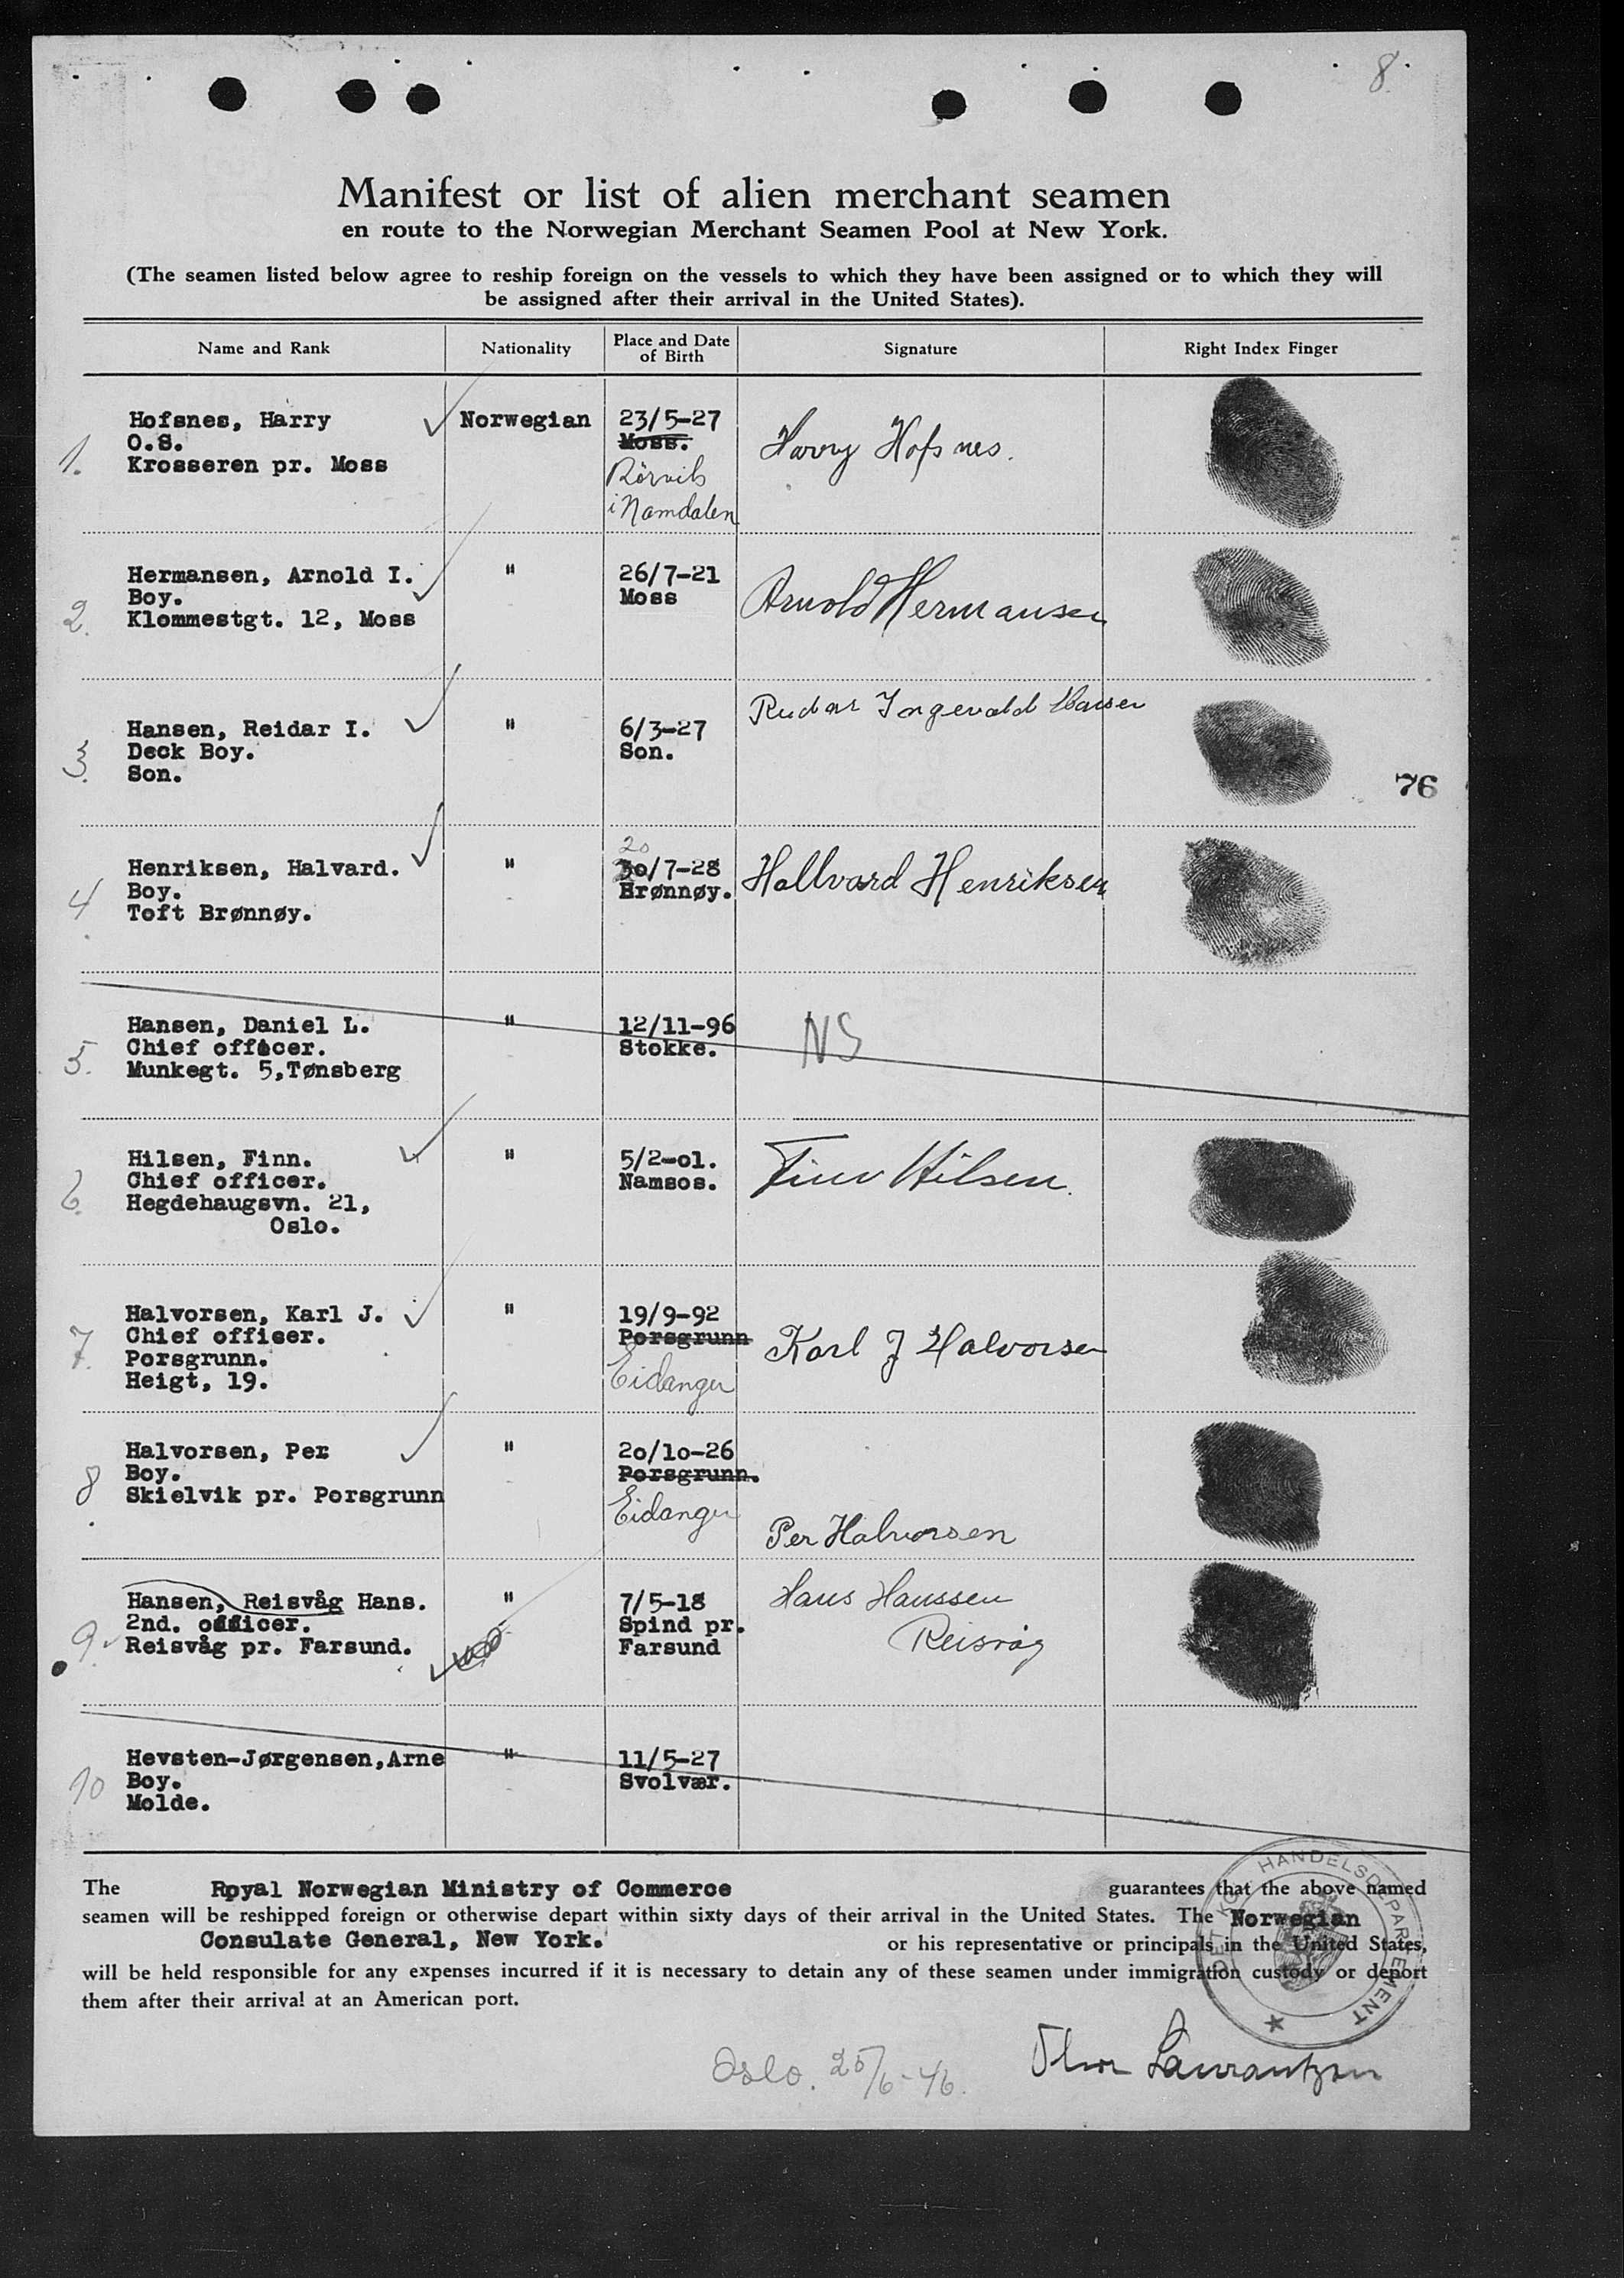 8.
Manifest or list of alien merchant seamen
en route to the Norwegian Merchant Seamen Pool at New York.
(The seamen listed below agree to reship foreign on the vessels to which they have been assigned or to which they will
be assigned after their arrival in the United States).
Name and Rank
Nationality
Place and Date
of Birth
Signature
Right Index Finger
1.
Hofsnes, Harry
O.S.
Krosseren pr. Moss
Norwegian
23/5-27
Moss.
Rörvik
i Namdalen
Harry Hofsnes.
2.
Hermansen, Arnold I.
Boy.
Klommestgt. 12, Moss
"
26/7-21
Moss
Arnold Hermansen
3.
Hansen, Reidar I.
Deck Boy.
Son.
"
6/3-27
Son.
Reidar Ingevald Hansen
76
4
Henriksen, Halvard.
Boy.
Toft Brønnøy.
"
20
30/7-28
Brønnøy.
Hallvard Henriksen
5.
Hansen, Daniel L.
Chief officer.
Munkegt. 5,Tønsberg
"
12/11-96
Stokke.
NS
6.
Hilsen, Finn.
Chief officer.
Hegdehaugsvn. 21,
Oslo.
"
5/2-01.
Namsos.
Finn Hilsen.
7.
Halvorsen, Karl J.
Chief officer.
Porsgrunn.
Heigt, 19.
"
19/9-92
Porsgrunn
Eidanger
Karl J Halvorsen
8
Halvorsen, Per
Boy.
Skielvik pr. Porsgrunn
"
20/10-26
Porsgrunn.
Eidanger
Per Halvorsen
9.
Hansen, Reisvåg Hans.
2nd. officer.
Reisvåg pr. Farsund.
"
7/5-18
Spind pr.
Farsund
Hans Hanssen
Reisvåg
10
Hevsten-Jørgensen,Arne
Boy.
Molde.
"
11/5-27
Svolvær.
The Royal Norwegian Ministry of Commerce guarantees that the above named
seamen will be reshipped foreign or otherwise depart within sixty days of their arrival in the United States. The Norwegian
Consulate General, New York. or his representative or principals in the United States,
will be held responsible for any expenses incurred if it is necessary to detain any of these seamen under immigration custody or deport
them after their arrival at an American port.
DET KGL HANDELSDEPARTEMENT
Oslo. 25/6-46.